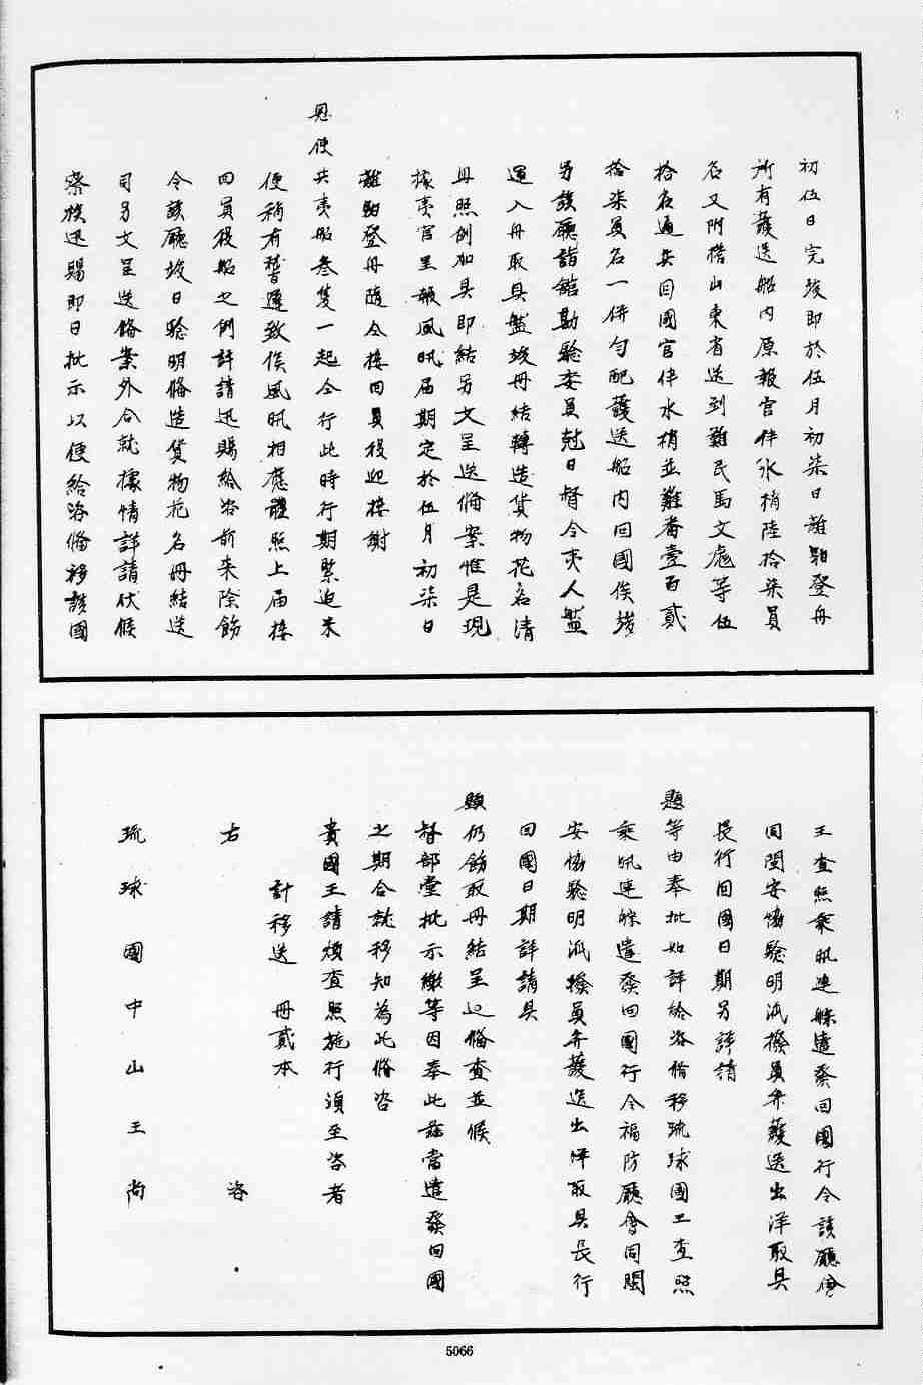 初伍日完竣即於伍月初柒日離驛登舟
所有護送船内原報官伴水梢陸拾柒員
名又附搭山東省送到難民馬文彪等伍
拾名通共回國官伴水梢並難番壹百貳
拾柒員名一併勻配護送船内回國俟竣
另該廳詣館勘驗委員尅日督令夷人盤
運入舟取具盤竣冊結轉造貨物花名清
冊照例加具印結另文呈送備案惟是現
據夷官呈報風帆届期定於伍月初柒日
離驛登舟隨令接回員役迎接謝
恩使共夷船叁隻一起令行此時行期緊迫未
便稍有稽遲致俟風帆相應體照上届接
回員役船之例詳請迅賜給咨前来除飭
令該廳竣日驗明俻造貨物花名冊結送
司另文呈送俻案外合就據情詳請伏候
察核迅賜即日批示以便給咨俻移該國
王查照乘帆速繇遣發回國行令該廳會
同閩安協驗明派撥員弁護送出洋取具
長行回國日期另詳請
題等由奉批如詳給洛俻移琉球國王查照
乘帆速繇遣發回國行令福防廳會同閩
安協驗明派撥員弁護送出洋取具長行
回國日期詳請具
題仍飭取冊結呈送俻查並候
督部堂批示繳等因奉此兹當遣發回國
之期合就移知為此俻咨
貴國王請煩查照施行須至咨者
計移送　冊貳本
右　　　咨
琉球國中山王尚
5066